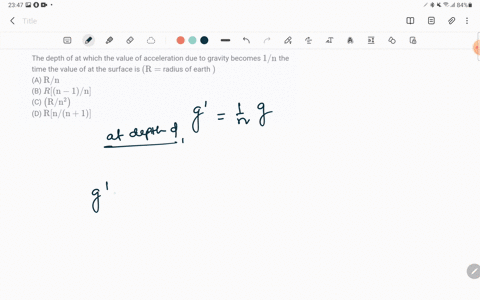 23:47
84%
Title
The depth of at which the value of acceleration due to gravity becomes 1/n the
time the value of at the surface is (R = radius of earth )
(A) R/n
(B) R[(n − 1)/n]
(C) (R/n²)
(D) R[n/(n + 1)]
at depth d, g' = 1/n g
g'